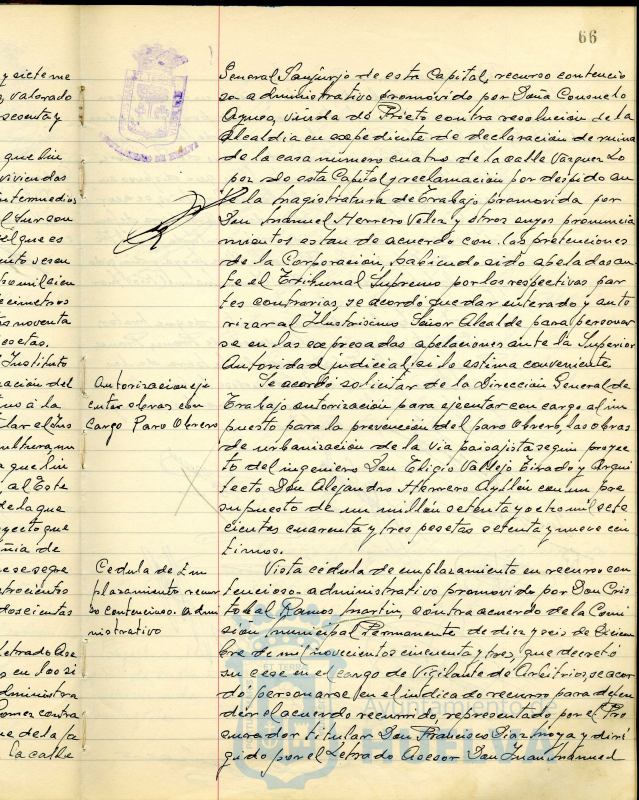 66
y siete me
, valorado
sesenta y
que lin
viviendas
intermedios
l Sur con
el que es
centimetros
noventa
pesetas.
Instituto
ración del
no á la
lar el Ins
que lin
al Este
de la que
oyecto que
nia de
ese segre
trocientos
doscientas
Letrado Ase
en los si
dministra
Gomez contra
ue de la ca
la calle
General Sanjurjo de esta Capital, recurso contencio
so administrativo promovido por Doña Consuelo
viuda de Prieto contra resolución de la
Alcaldia en expediente de declaración de ruina
de la casa número cuatro de la calle Vázquez Lo
pez de esta Capital y reclamación por despido an
te la Magistratura de Trabajo promovida por
Don Manuel Herrero Velez y otros cuyos pronuncia
mientos estan de acuerdo con las pretenciones
de la Corporación habiendo sido apeladas an
te el Tribunal Supremo por las respectivas par
tes contrarias se acordó quedar enterado y auto
rizar al Ilustrisimo Señor Alcalde para personar
se en las expresadas apelaciones ante la Superior
Autoridad judicial, si lo estima conveniente.
Autorización eje
cutar obras con
cargo Paro Obrero
Se acordó solicitar de la Dirección General de
Trabajo autorización para ejecutar con cargo al im
puesto para la prevención del paro Obrero, las obras
de urbanización de la via paisajista segun proyec
to del ingeniero Don Eligio Vallejo Eirado y Arqui
tecto Don Alejandro Herrero Ayllón con un pre
supuesto de un millón setenta y ocho mil sete
cientos cuarenta y tres pesetas setenta y nueve cen
timos.
Cedula de Em
plazamiento recur
so contencioso-admi
nistrativo
Vista cédula de emplazamiento en recurso con
tencioso-administrativo promovido por Don Cris
tobal Ramos Martin, contra acuerdo de la Comi
sión municipal Permanente de diez y seis de Diciem
bre de mil novecientos cincuenta y tres, que decretó
su cese en el cargo de Vigilante de Arbitrios, se acor
dó personarse en el indicado recurso para defen
der el acuerdo recurrido, representado por el Pro
curador titular Don Francisco Diaz Moya y diri
gido por el Letrado Asesor Don Juan Manuel
Ayuntamiento de
HUELVA